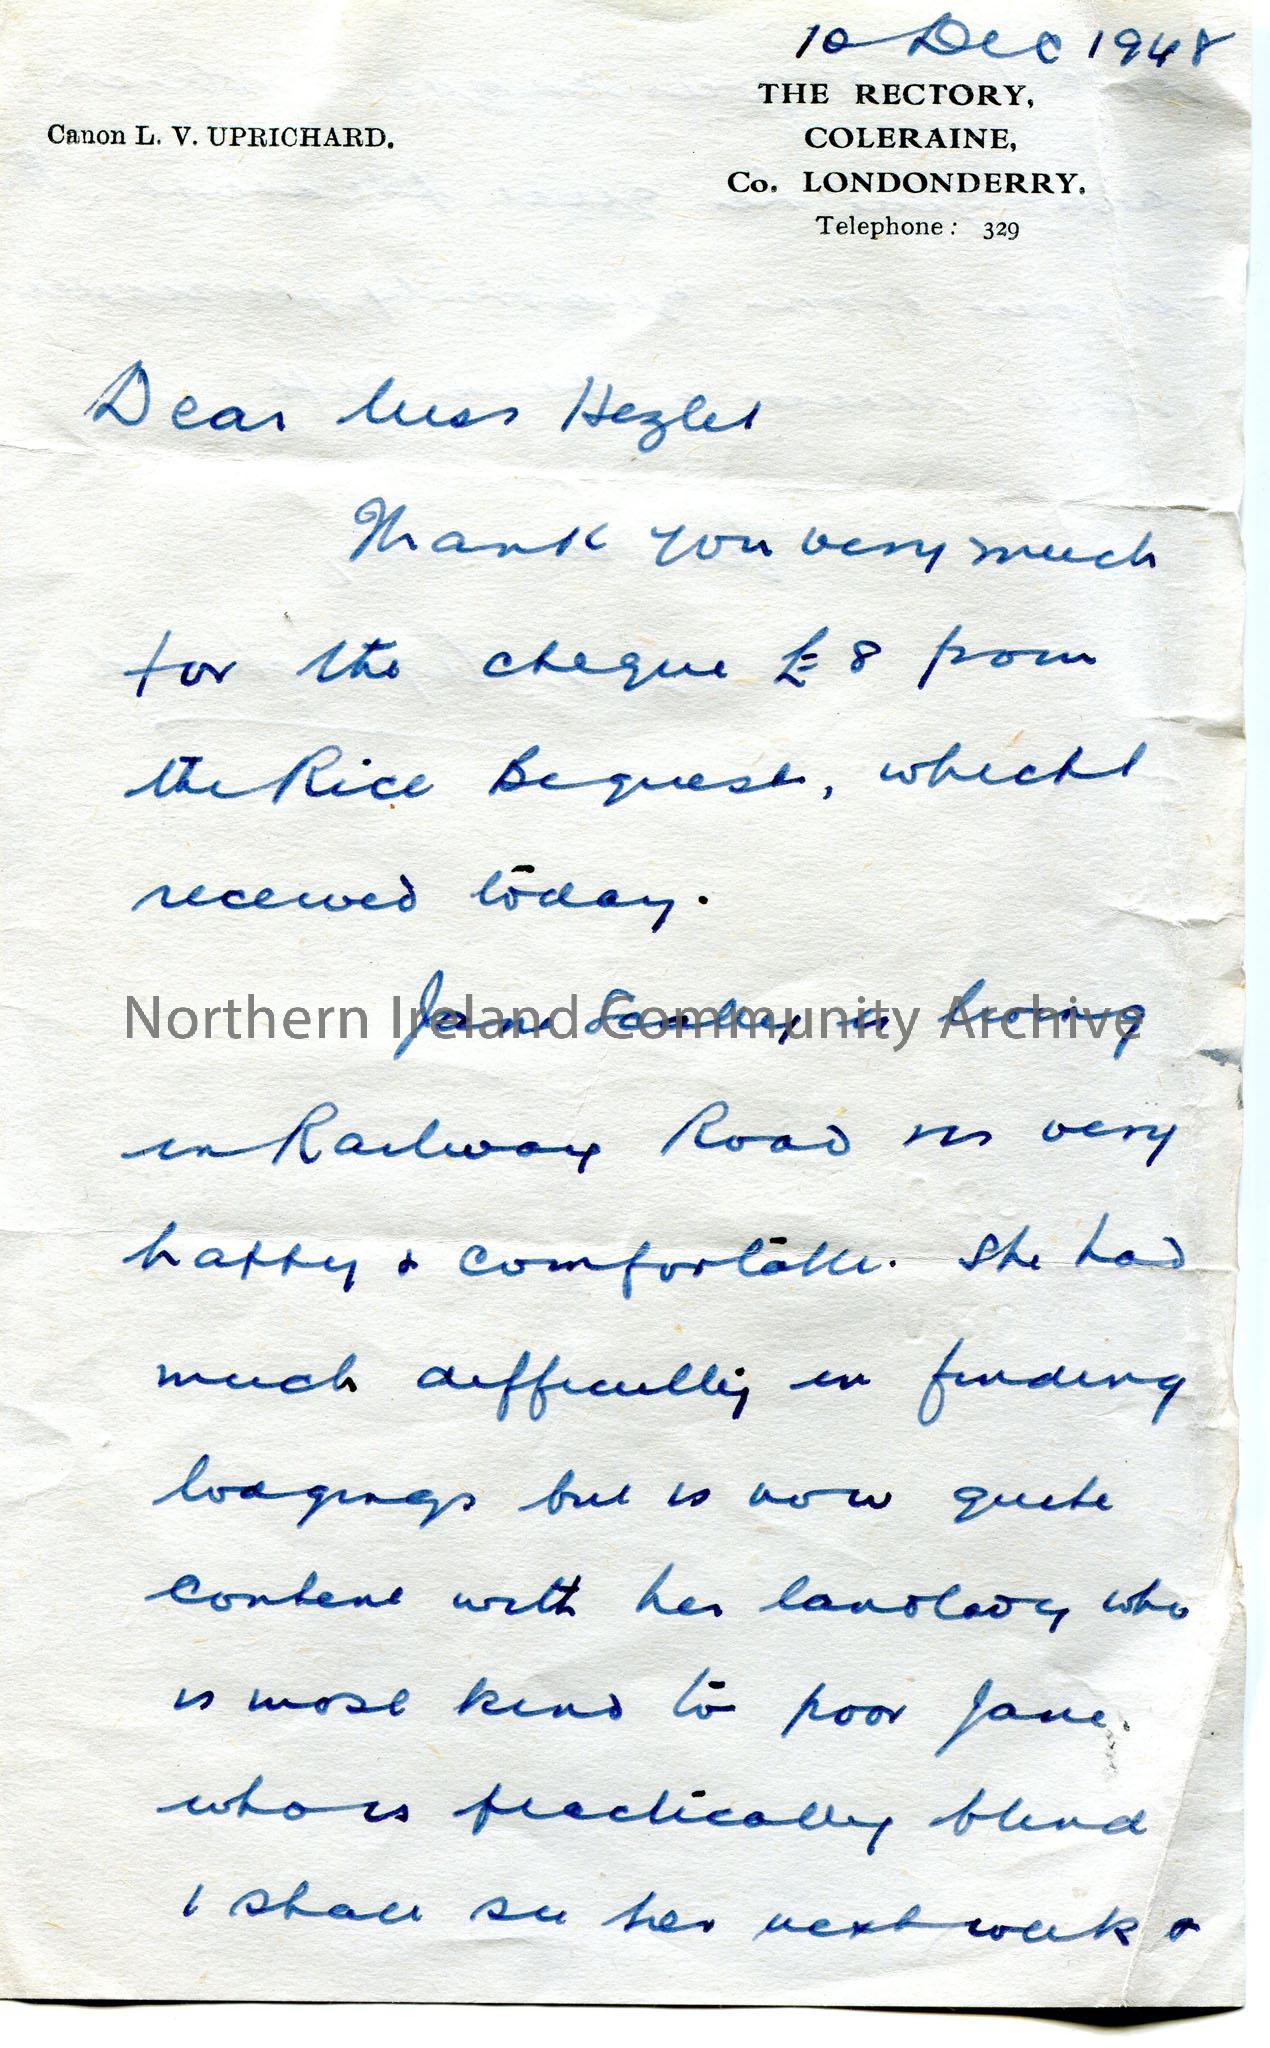 10 Dec 1948
THE RECTORY,
Canon L. V. UPRICHARD.
COLERAINE,
Co. LONDONDERRY.
Telephone: 329
Dear Miss Hezlet
Thank you very much
for the cheque £8 from
the Rice Bequest, which I
received today.
Northern Ireland Community Archive
Jane is living
in Railway Road is very
happy & comfortable. She had
much difficulty in finding
lodgings but is now quite
content with her landlady who
is most kind to poor Jane.
who is practically blind
I shall see her next week &